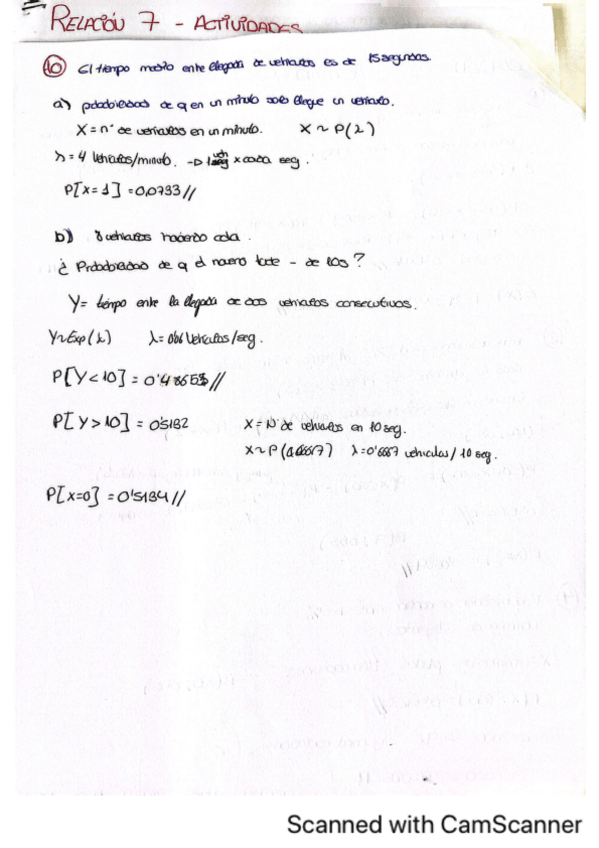 RELACIÓN 7 - ACTIVIDADES
10 El tiempo medio entre llegada de vehículos es de 15 segundos.
a) probabilidad de q en un minuto solo llegue un vehículo.
X = nº de vehículos en un minuto. X ~ P(λ)
λ = 4 vehículos/minuto. -> 1 veh x cada seg.
P[X=1] = 0,0733//
b) 8 vehículos haciendo cola.
¿ Probabilidad de q el noveno tarde - de 10s?
Y = tiempo entre la llegada de dos vehículos consecutivos.
Y~Exp(λ) λ= 0'06 Vehículos/seg.
P[Y<10] = 0'48658//
P[Y>10] = 0'5132 X = Nº de vehículos en 10 seg.
X ~ P(0.6667) λ=0'6667 vehículos/10 seg.
P[X=0] = 0'5134//
Scanned with CamScanner